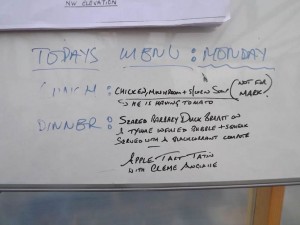 NW ELEVATION
TODAYS MENU : MONDAY
CHICKEN, MUSHROOM + SOUP (NOT FOR
MARK)
→ HE IS HAVING TOMATO
DINNER : SEARED BARBARY DUCK BREAST ON
A BUBBLE + SQUEAK
SERVED WITH A BLACKCURRANT COMPOTE
APPLE TART TATIN
WITH CRÈME ANGLAISE